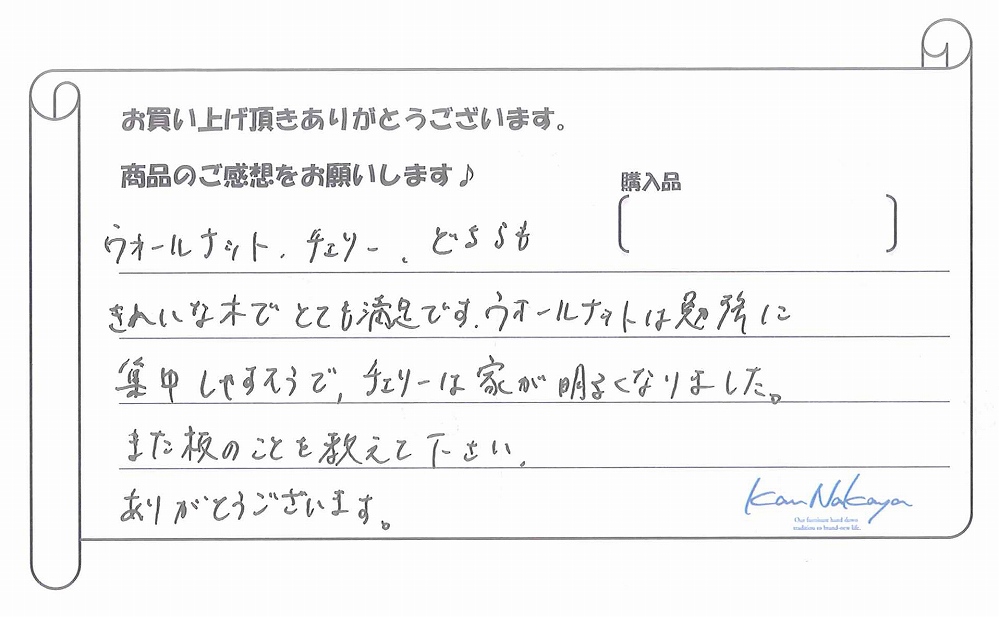 お買い上げ頂きありがとうございます。
商品のご感想をお願いします♪
購入品
ウォールナット、チェリー、どちらも
きれいな木でとても満足です。ウォールナットは勉強に
集中しやすそうで、チェリーは家が明るくなりました。
また板のことを教えて下さい。
ありがとうございます。
Kan Nakaya
Our furniture hand down
tradition to brand-new life.